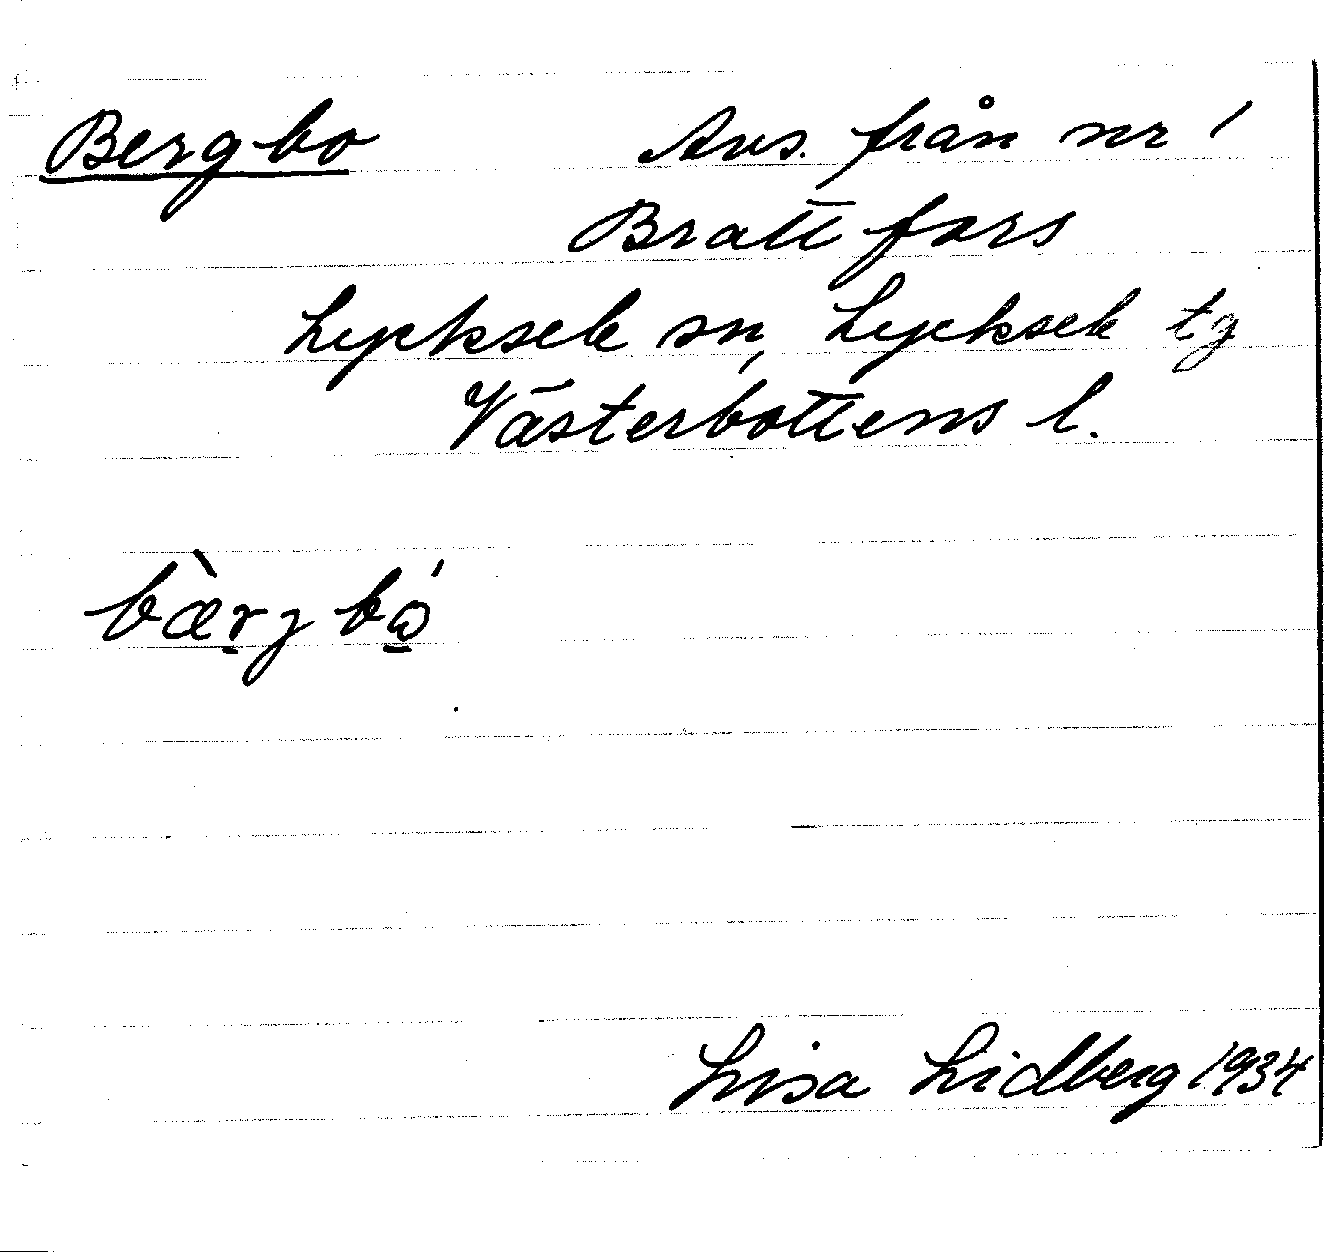 Bergbo Avs. från nr 1
Brattfors
Lycksele sn, Lycksele tg
Västerbottens l.
bæ̀r̠jbώ̠
Lisa Lidberg 1934